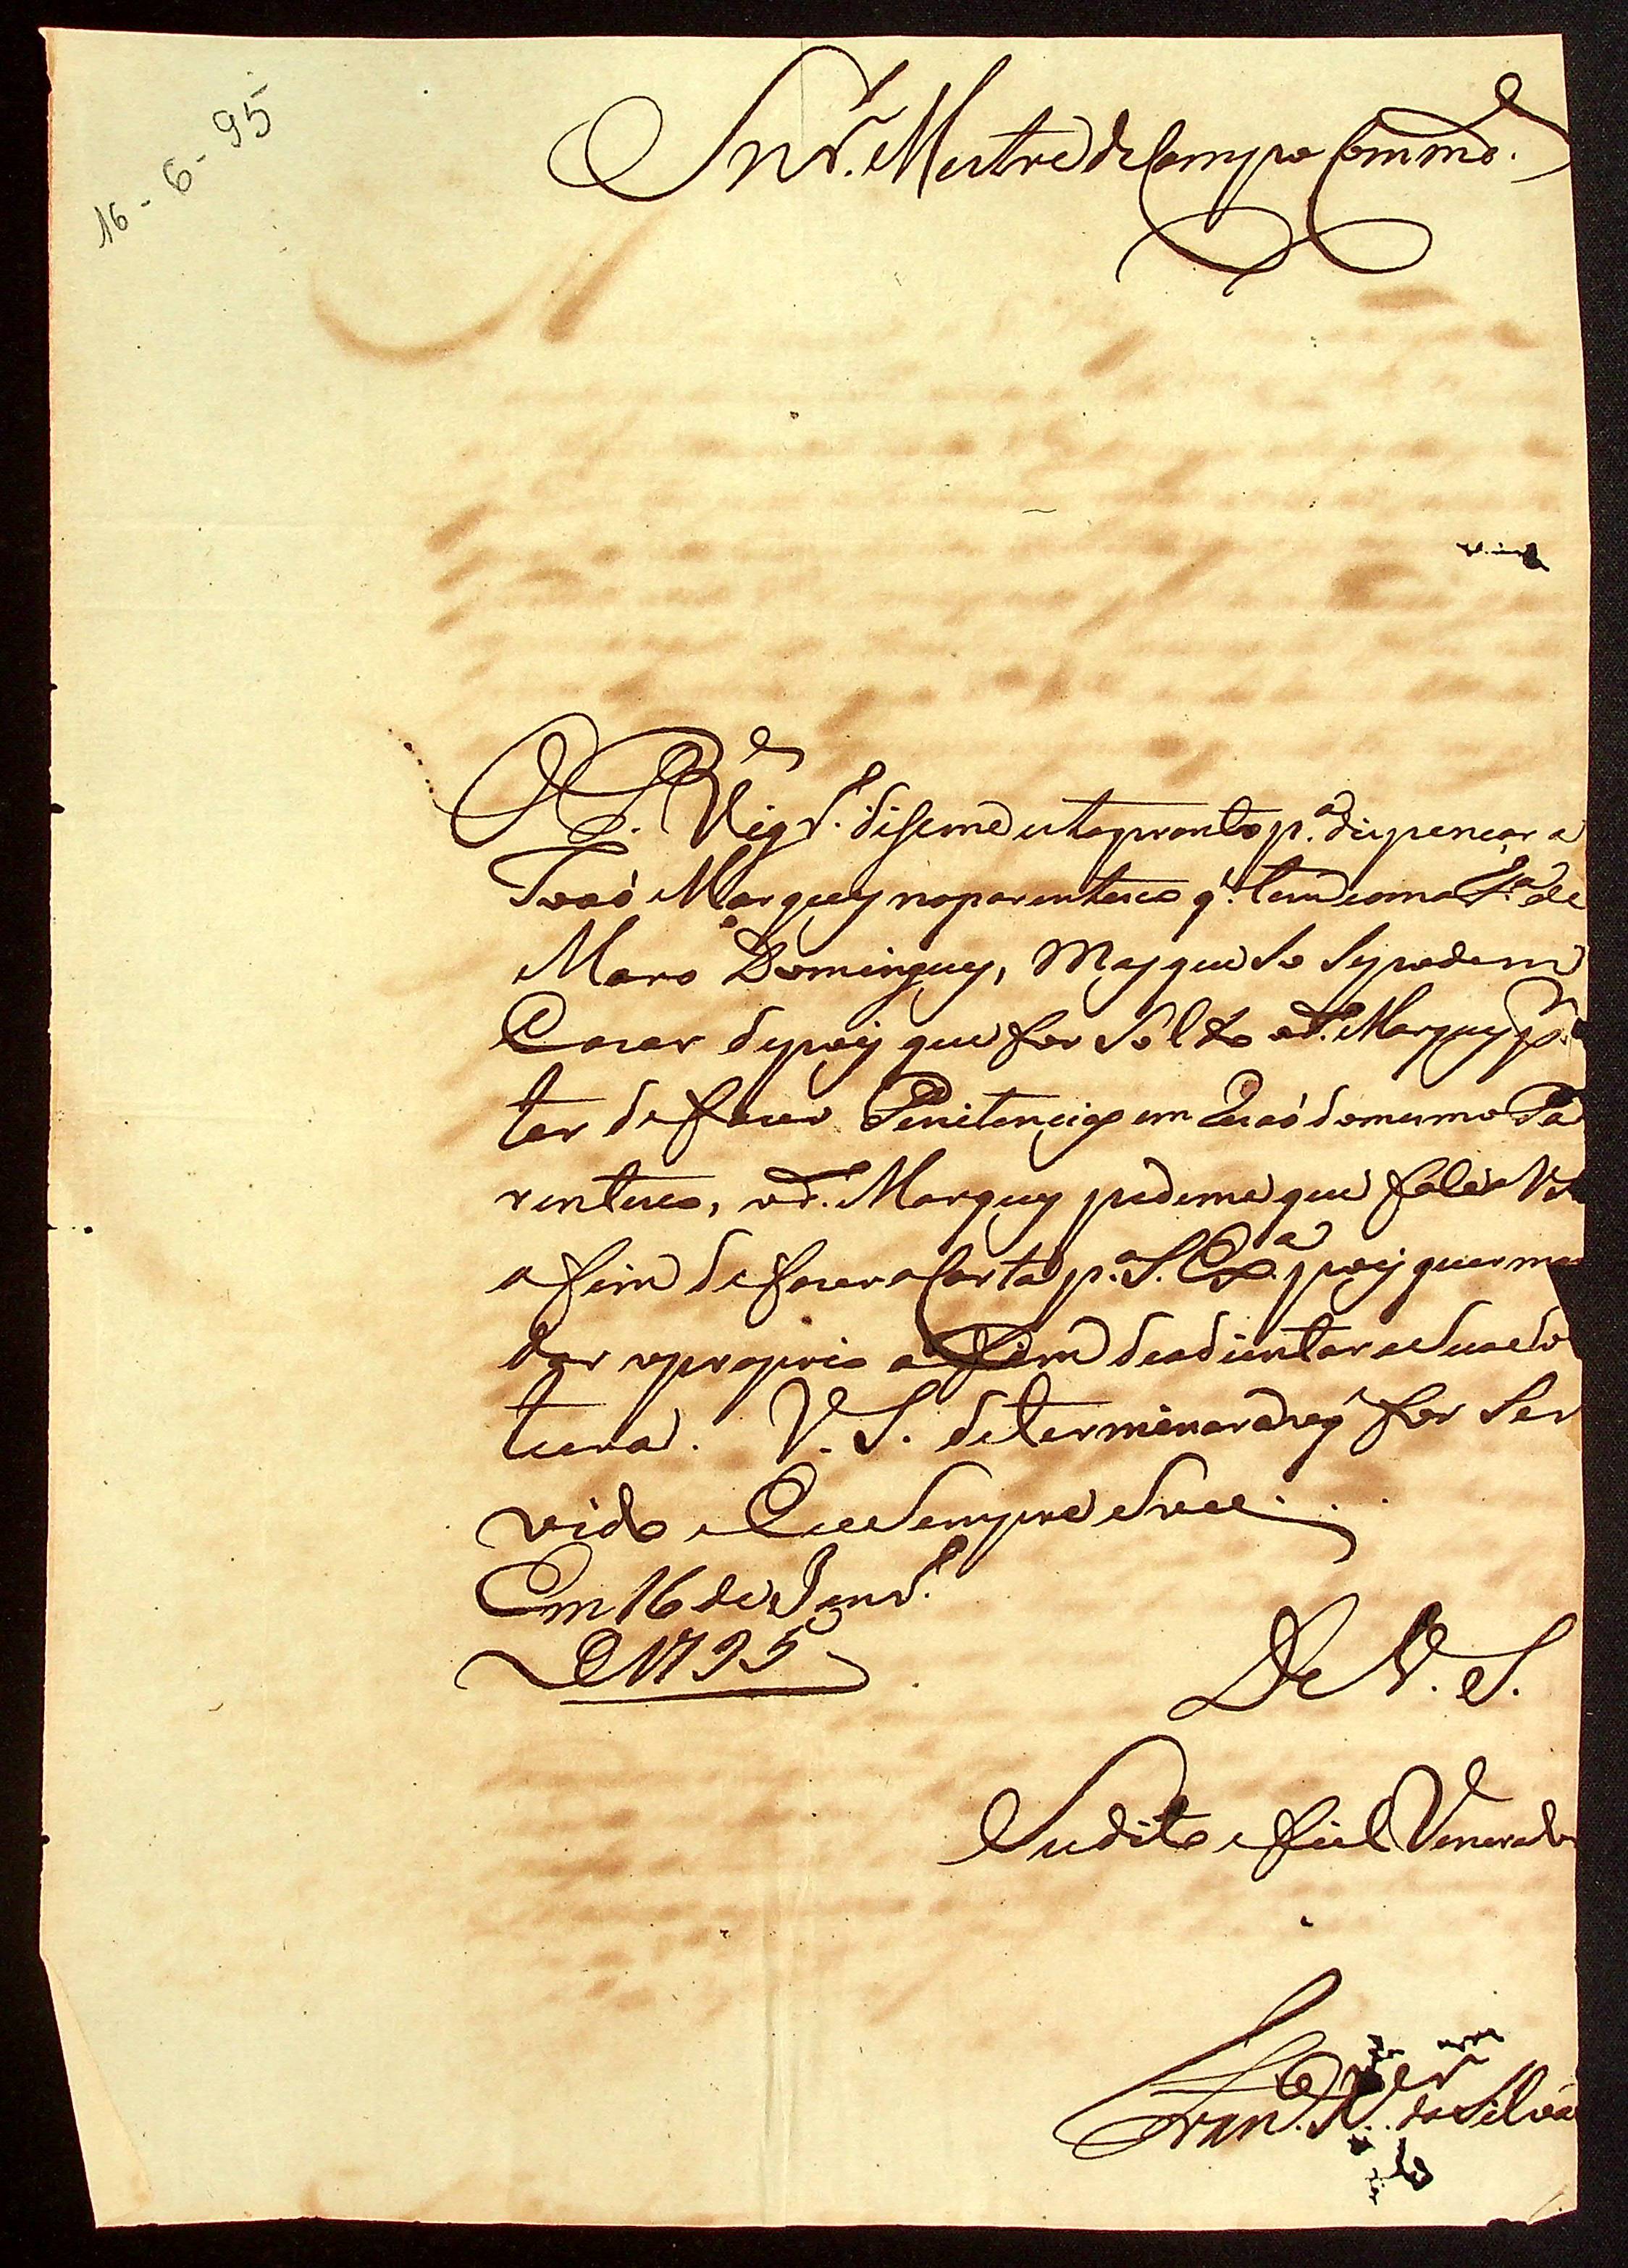 16-6-95
Snr. Mestre de Campo Commde.
O R.do Vigr.o disceme estapronto p.a dispençar a
Joaõ Marques noparentesco q' tem coma F.a de
Maro Domingues, Mas que So Sepodem
Cazar depois que for Solto o d.o Marques p.a
ter de fazer Penitencias em Rezaõ domesmo Pa
rentesco, o d.o Marques pedeme que fale a VS
a fim de fazer a Carta p.a S. Ex.a pois quer man
dar oproprio a fim deadiantar a Sua Sol
tura. V. S. determinará o q' for Ser
vido e Eu Sempre Sou
Em 16 de Junr.o
D 1795
De V. S.
Sudito e fiel Venerador
Fran.co X.er da Silva